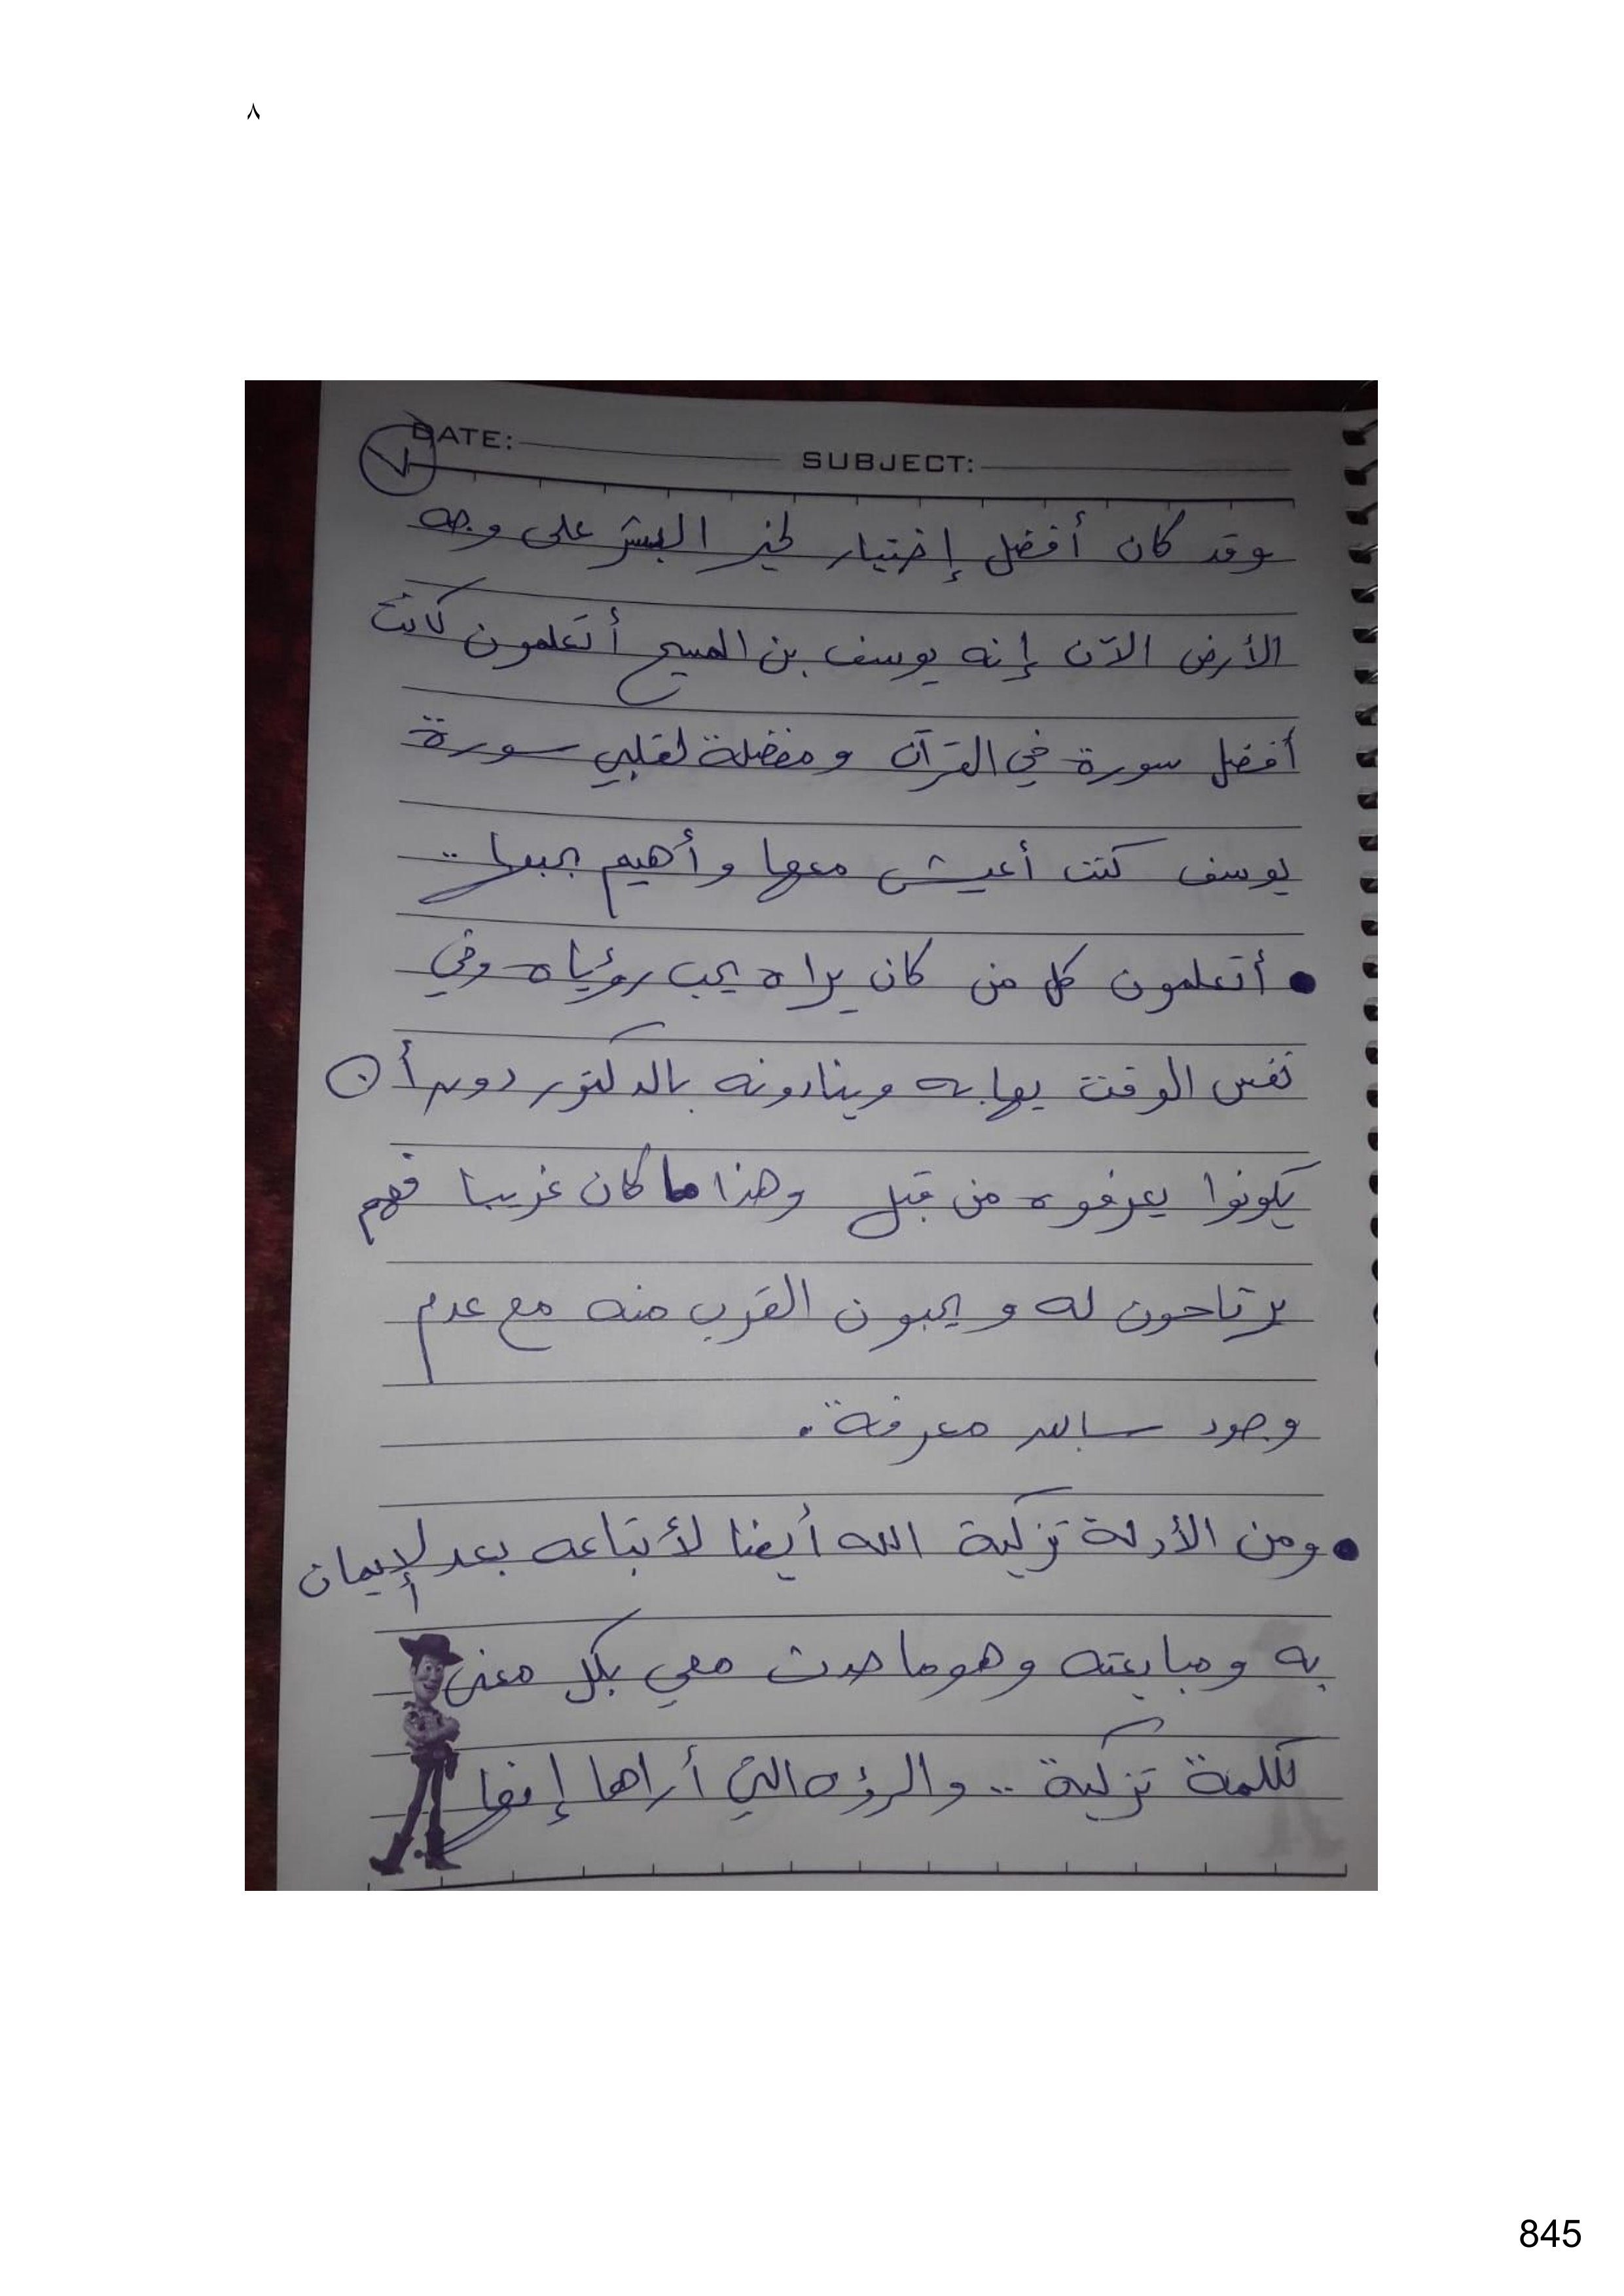 ٨
DATE: SUBJECT:
٧
وقد كان أفضل إختيار لخير البشر على وجه
الأرض الآن إنه يوسف بن المسيح أتعلمون كانت
أفضل سورة في القرآن ومفضلة لقلبي سورة
يوسف كنت أعيش معها وأهيم بحبها ..
• أتعلمون كل من كان يراه يحب رؤياه وفي
نفس الوقت يهابه وينادونه بالدكتور دون أن
يكونوا يعرفوه من قبل وهذا ما كان غريبا فهم
يرتاحون له ويحبون القرب منه مع عدم
وجود سابق معرفة.
• ومن الأدلة تزكية الله أيضا لأتباعه بعد الإيمان
به ومبايعته وهو ما حدث معي بكل معنى
لكلمة تزكية .. والرؤى التي أراها إنها
845